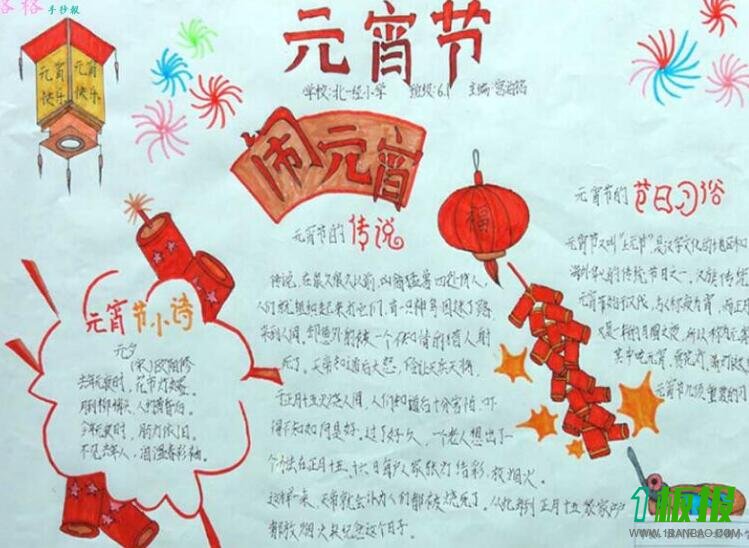 格格手抄报
元宵节
学校:北一经小学 班级:6.1 主编:
元宵快乐 元宵快乐
闹元宵
元宵节的传说
传说,在很久很久以前,凶禽猛兽四处伤人,
人们就组织起来打它们,有一只神鸟因迷了路
来到人间,却意外的被一个不知情的猎人射
死了。天帝知道后大怒,传让天兵天将
元正月十五火烧人间,人们知道后十分害怕,吓
得不知如何是好。过了好久,一个老人想出了一
个办法在正月十五、十六日每户人家张灯结彩,放烟火。
这样一来,天帝就会认为人们都被烧死了。从此每到正月十五
都放烟火来纪念这个日子。
元宵节小诗
元夕
(宋)欧阳修
去年元夜时,花市灯如昼。
月到柳梢头,人约黄昏后。
今年元夜时,月灯依旧。
不见去年人,泪湿春衫袖。
福
元宵节的节日习俗
元宵节又叫“上元节”,是汉字文化的地区和
海外华人的传统节日之一。汉族传统
元宵节始于汉代,
又是一年的月圆之夜,所以称为元宵
其中吃元宵、赏花灯、猜灯谜
元宵节几项重要的
1板报
WWW.1BANBAO.COM